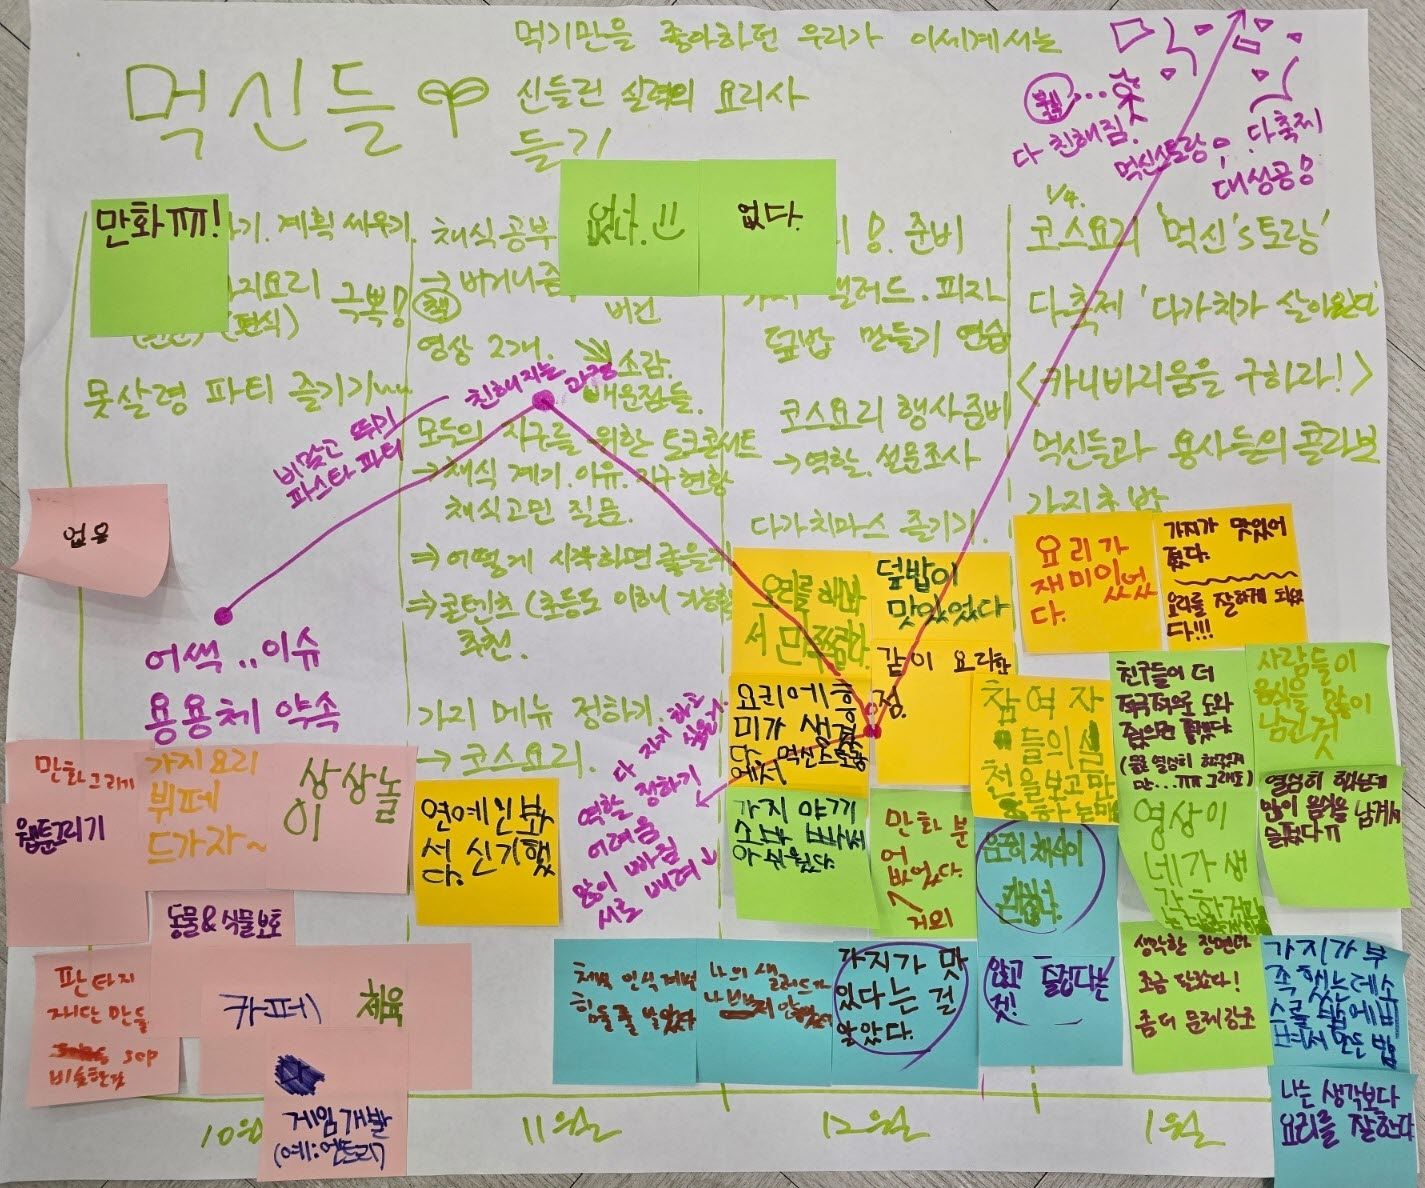 먹신들
먹기만을 좋아하던 우리가 이세계에서는
신들린 실력의 요리사
들기
다 친해짐.
먹신스토랑
다축제
대성공
만화ㅠㅠ!
계획 세우기.
지요리
극뽁!
(편식)
못살령 파티 즐기기
채식공부
→ 버거니즘
책
영상 2개.
버건
소감.
배운점들.
모두의 지구를 위한 토크콘서트
→ 채식 계기. 이유. 지구현황
채식고민 질문.
⇒ 어떻게 시작하면 좋을지
⇒ 콘텐츠 (초등도 이해 가능한)
추천.
가지 메뉴 정하기.
→ 코스요리.
없다.
없다.
준비
샐러드. 피자
덮밥 만들기 연습
코스요리 행사준비
→ 역할. 설문조사
다가치마스 즐기기.
1/4.
코스요리 '먹신's토랑'
다축제 '다가치가 살아있다'
<카니바리움을 구하라!>
먹신들과 용사들의 콜라보
가지초밥
비맞고 뛰기
파스타파티
친해지는
과정
없음
어색 ..이슈
용용체 약속
다 자기 하고
싶은거
역할 정하기
어려움
많이 빠짐
서로 배려 ↓
만화그리기
가지요리
뷔페
드가자~
상상놀
이
웹툰그리기
동물&식물보호
판타지
재단 만들
SCP
비슷한거
카페
체육
게임개발
(예:엔트리)
연예인봐
서 신기했
다.
요리를 해봐
서 만족한다.
덮밥이
맛있었다
요리에 흥
미가 생겼
다. 먹신스토랑
에서
같이 요리한
점.
요리가
재미있었
다.
가지가 맛있어
졌다.
요리를 잘하게 되었
다!!!
참여자
들의 실
천을 보고 만
가지 얘기
아쉬웠다.
만화 분
어
없었다.
거의
친구들이 더
적극적으로 도와
줬으면 좋겠다
사람들이
음식을 많이
남긴것
영상이
네가 생
열심히 했는데
많이 음식을 남겨서
슬펐다ㅠ
생각한 장면과
조금 달랐다!
좀더 문제강조
채식 인식개변
힘들 줄 알았다
나의 샐러드가
가지가 맛
있다는 걸
알았다.
은근히 채식이
괜찮다.
않고 즐긴다는
것!
가지가 부
족했는데 소
스를 밥에 비
벼서 만든 밥
나는 생각보다
요리를 잘한다
10월
11월
12월
1월